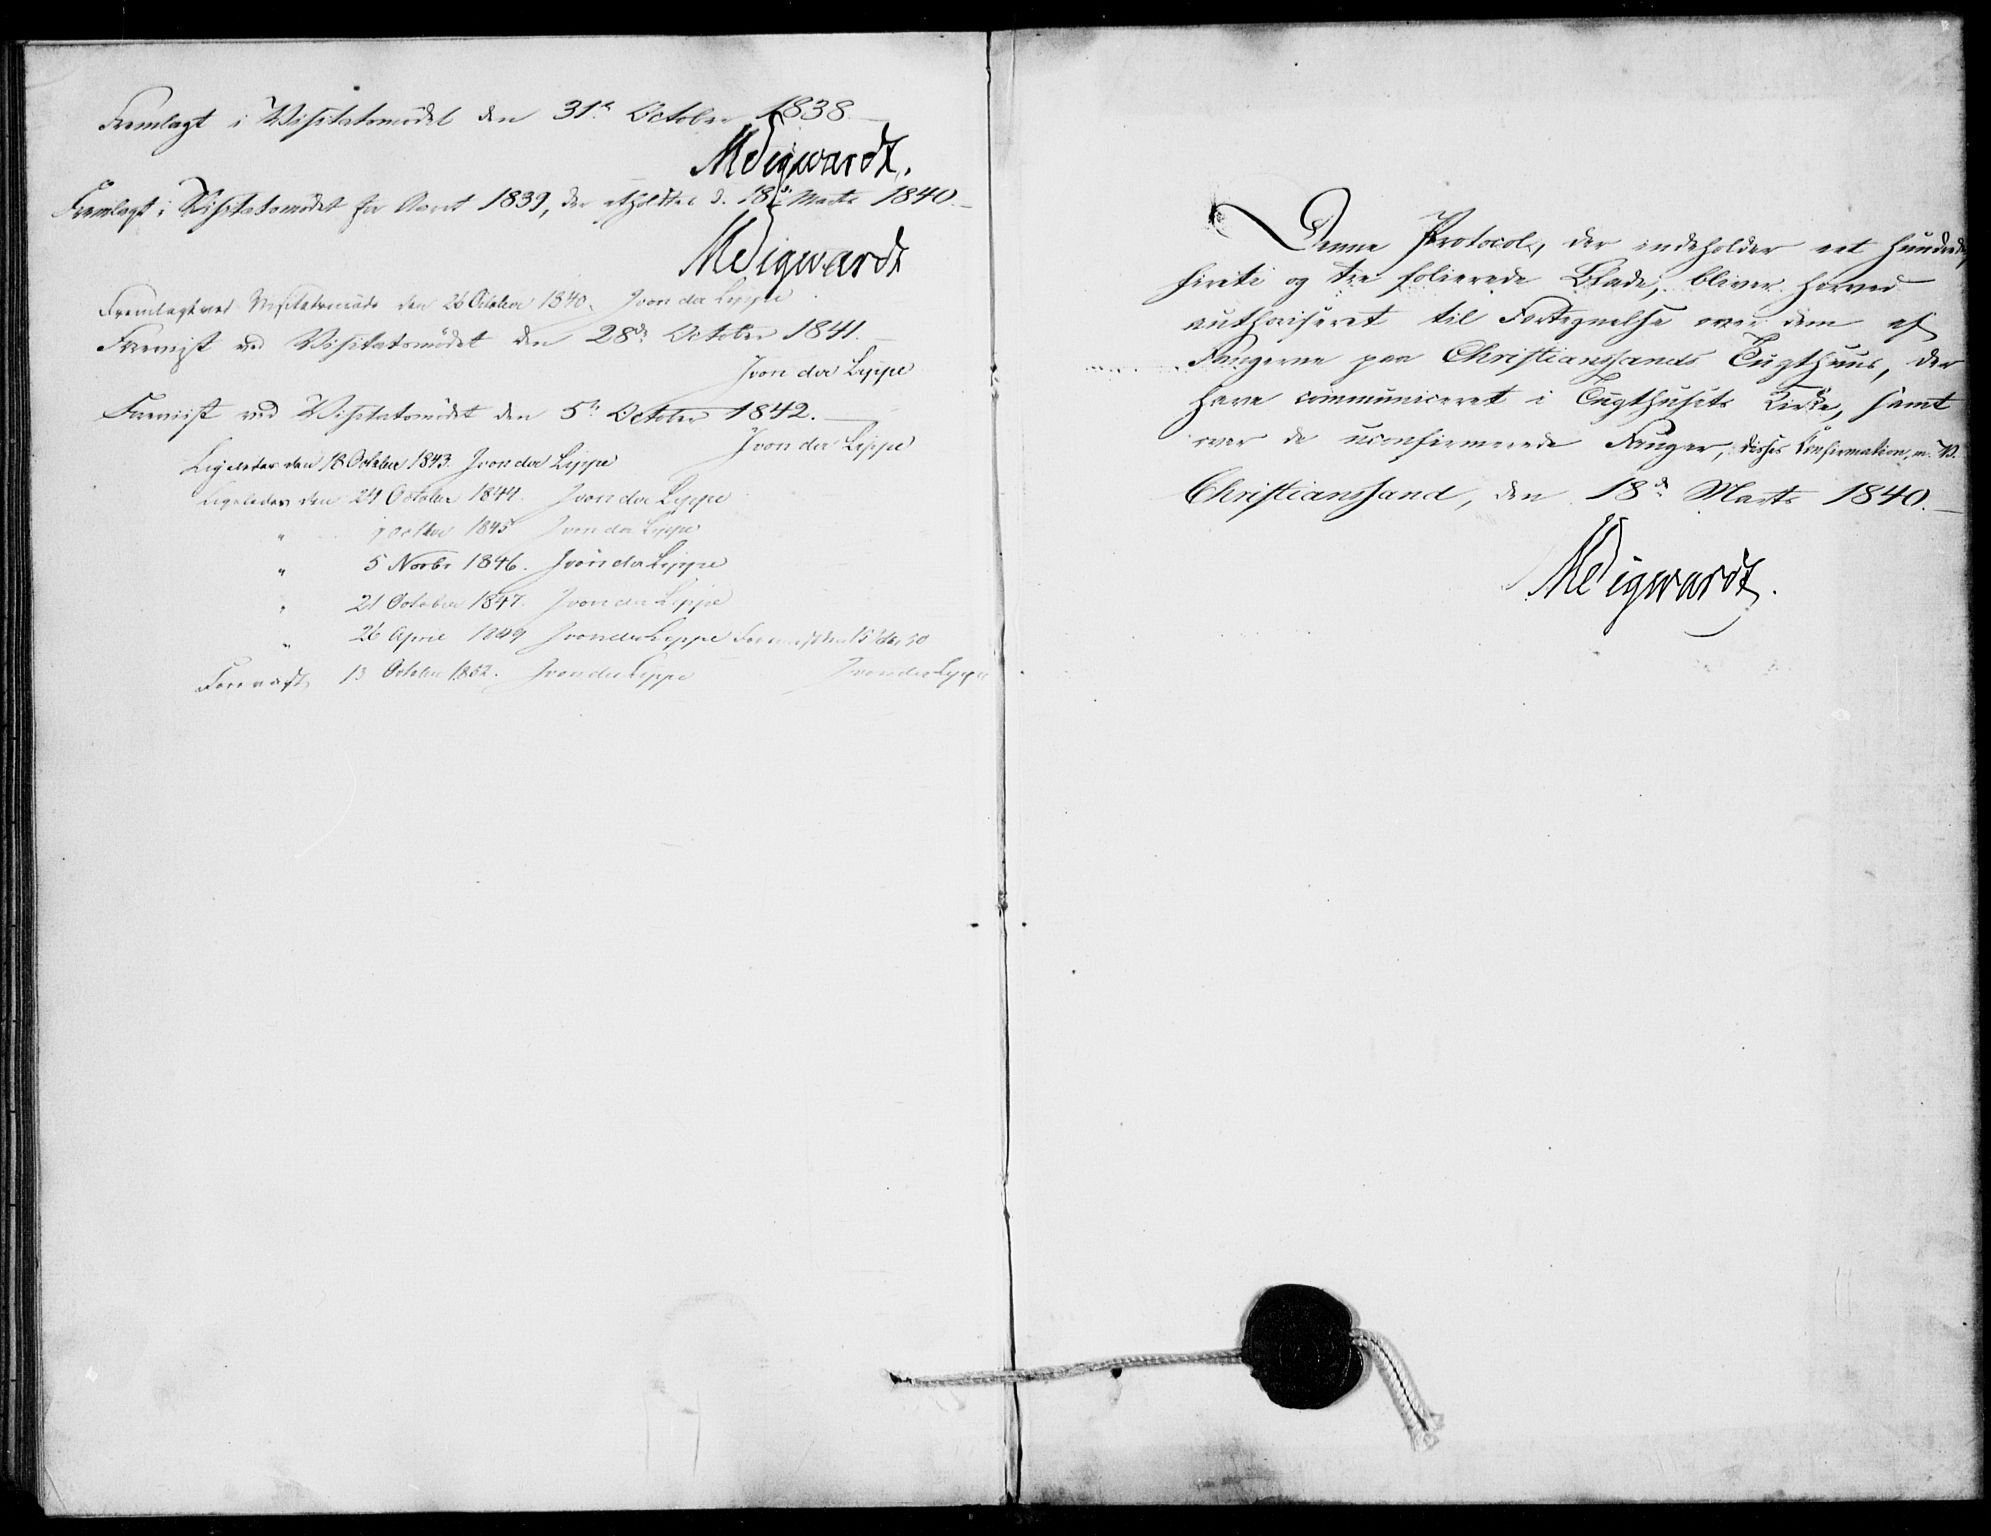 Fremlagt i Visitatsmødet den 31te October 1838.
M Sigwardt.
Fremlagt i Visitatsmødet for Aaret 1839, der afholdtes d. 18de Marts 1840.
M Sigwardt
Fremlagt ved Visitatsmøde den 26 October 1840. J von der Lippe
Foreviist ved Visitatsmødet den 28de October 1841.
J von der Lippe
Foreviist ved Visitatsmødet den 5te October 1842.
J von der Lippe
Ligeledes den 18 October 1843. J von der Lippe
Ligeledes den 24 October 1844. J von der Lippe
" 9 October 1845 J von der Lippe
" 5 Novbr 1846. J von der Lippe
" 21 October 1847. J von der Lippe
" 26 April 1849 J von der Lippe Foreviist den 15 50
Foreviist 13 October 1852. J von der Lippe J von der Lippe
Denne Protocol, der indeholder eet hundrede
fireti og tre folierede Blade, bliver herved
authoriseret til Fortegnelse over dem af
Fangerne paa Christianssands Tugthuus, der
have communiceret i Tugthusets Kirke, samt
over de uconfirmerede Fanger, disses Confirmation, m. V.
Christianssand, den 18de Marts 1840.
M Sigwardt.